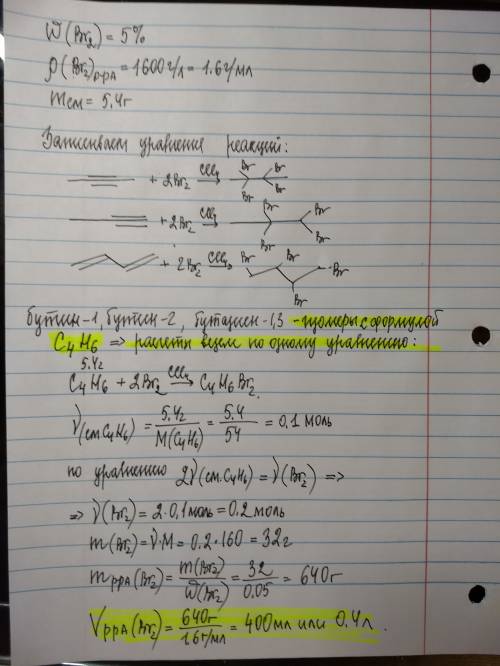 W(Br₂) = 5%
ρ(Br₂)р-рА = 1600 г/л = 1.6 г/мл
mсм = 5.4г
Записываем уравнения реакций:
+ 2Br₂ CCl₄ Br Br Br Br
+ 2Br₂ CCl₄ Br Br Br Br
+ 2Br₂ CCl₄ Br Br Br Br
бутин-1, бутин-2, бутадиен-1,3 - изомеры с формулой
C₄H₆ => расчеты ведем по одному уравнению:
5.4г
C₄H₆ + 2Br₂ CCl₄ C₄H₆Br₂.
ν(см.C₄H₆) = 5.4г / M(C₄H₆) = 5.4 / 54 = 0.1 моль
по уравнению 2ν(см.C₄H₆) = ν(Br₂) =>
=> ν(Br₂) = 2·0,1моль = 0.2 моль
m(Br₂) = ν·M = 0.2·160 = 32г
mррА(Br₂) = m(Br₂) / W(Br₂) = 32 / 0.05 = 640г
VррА(Br₂) = 640г / 1.6г/мл = 400мл или 0,4л.